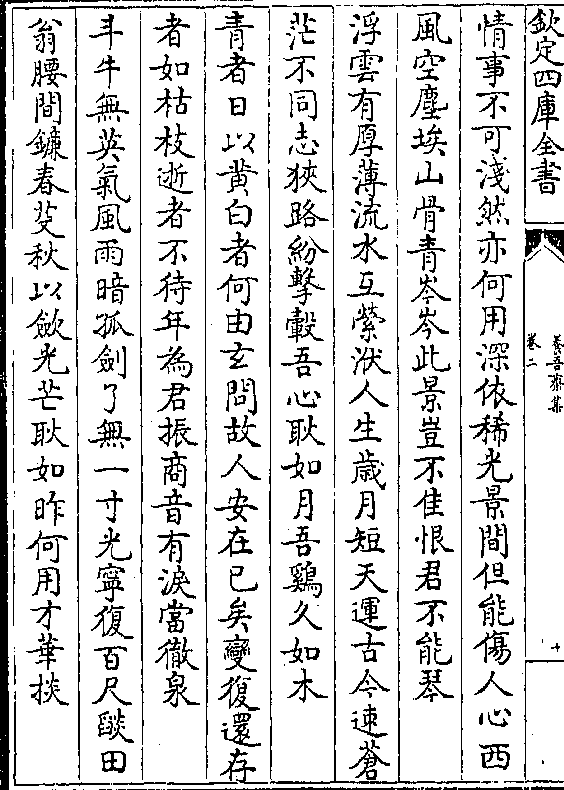 欽定四庫全書
養吾齋集
卷二
十
情事不可淺然亦何用深依稀光景間但能傷人心西
風空塵埃山骨青岑岑此景豈不佳恨君不能琴
浮雲有厚薄流水互縈洑人生歲月短天運古今速蒼
茫不同志狹路紛擊轂吾心耿如月吾鷄久如木
青者日以黄白者何由玄問故人安在已矣變復還存
者如枯枝逝者不待年為君振商音有淚當徹泉
斗牛無英氣風雨暗孤劍了無一寸光寧復百尺燄田
翁腰間鐮春芟秋以歛光芒耿如昨何用才華掞